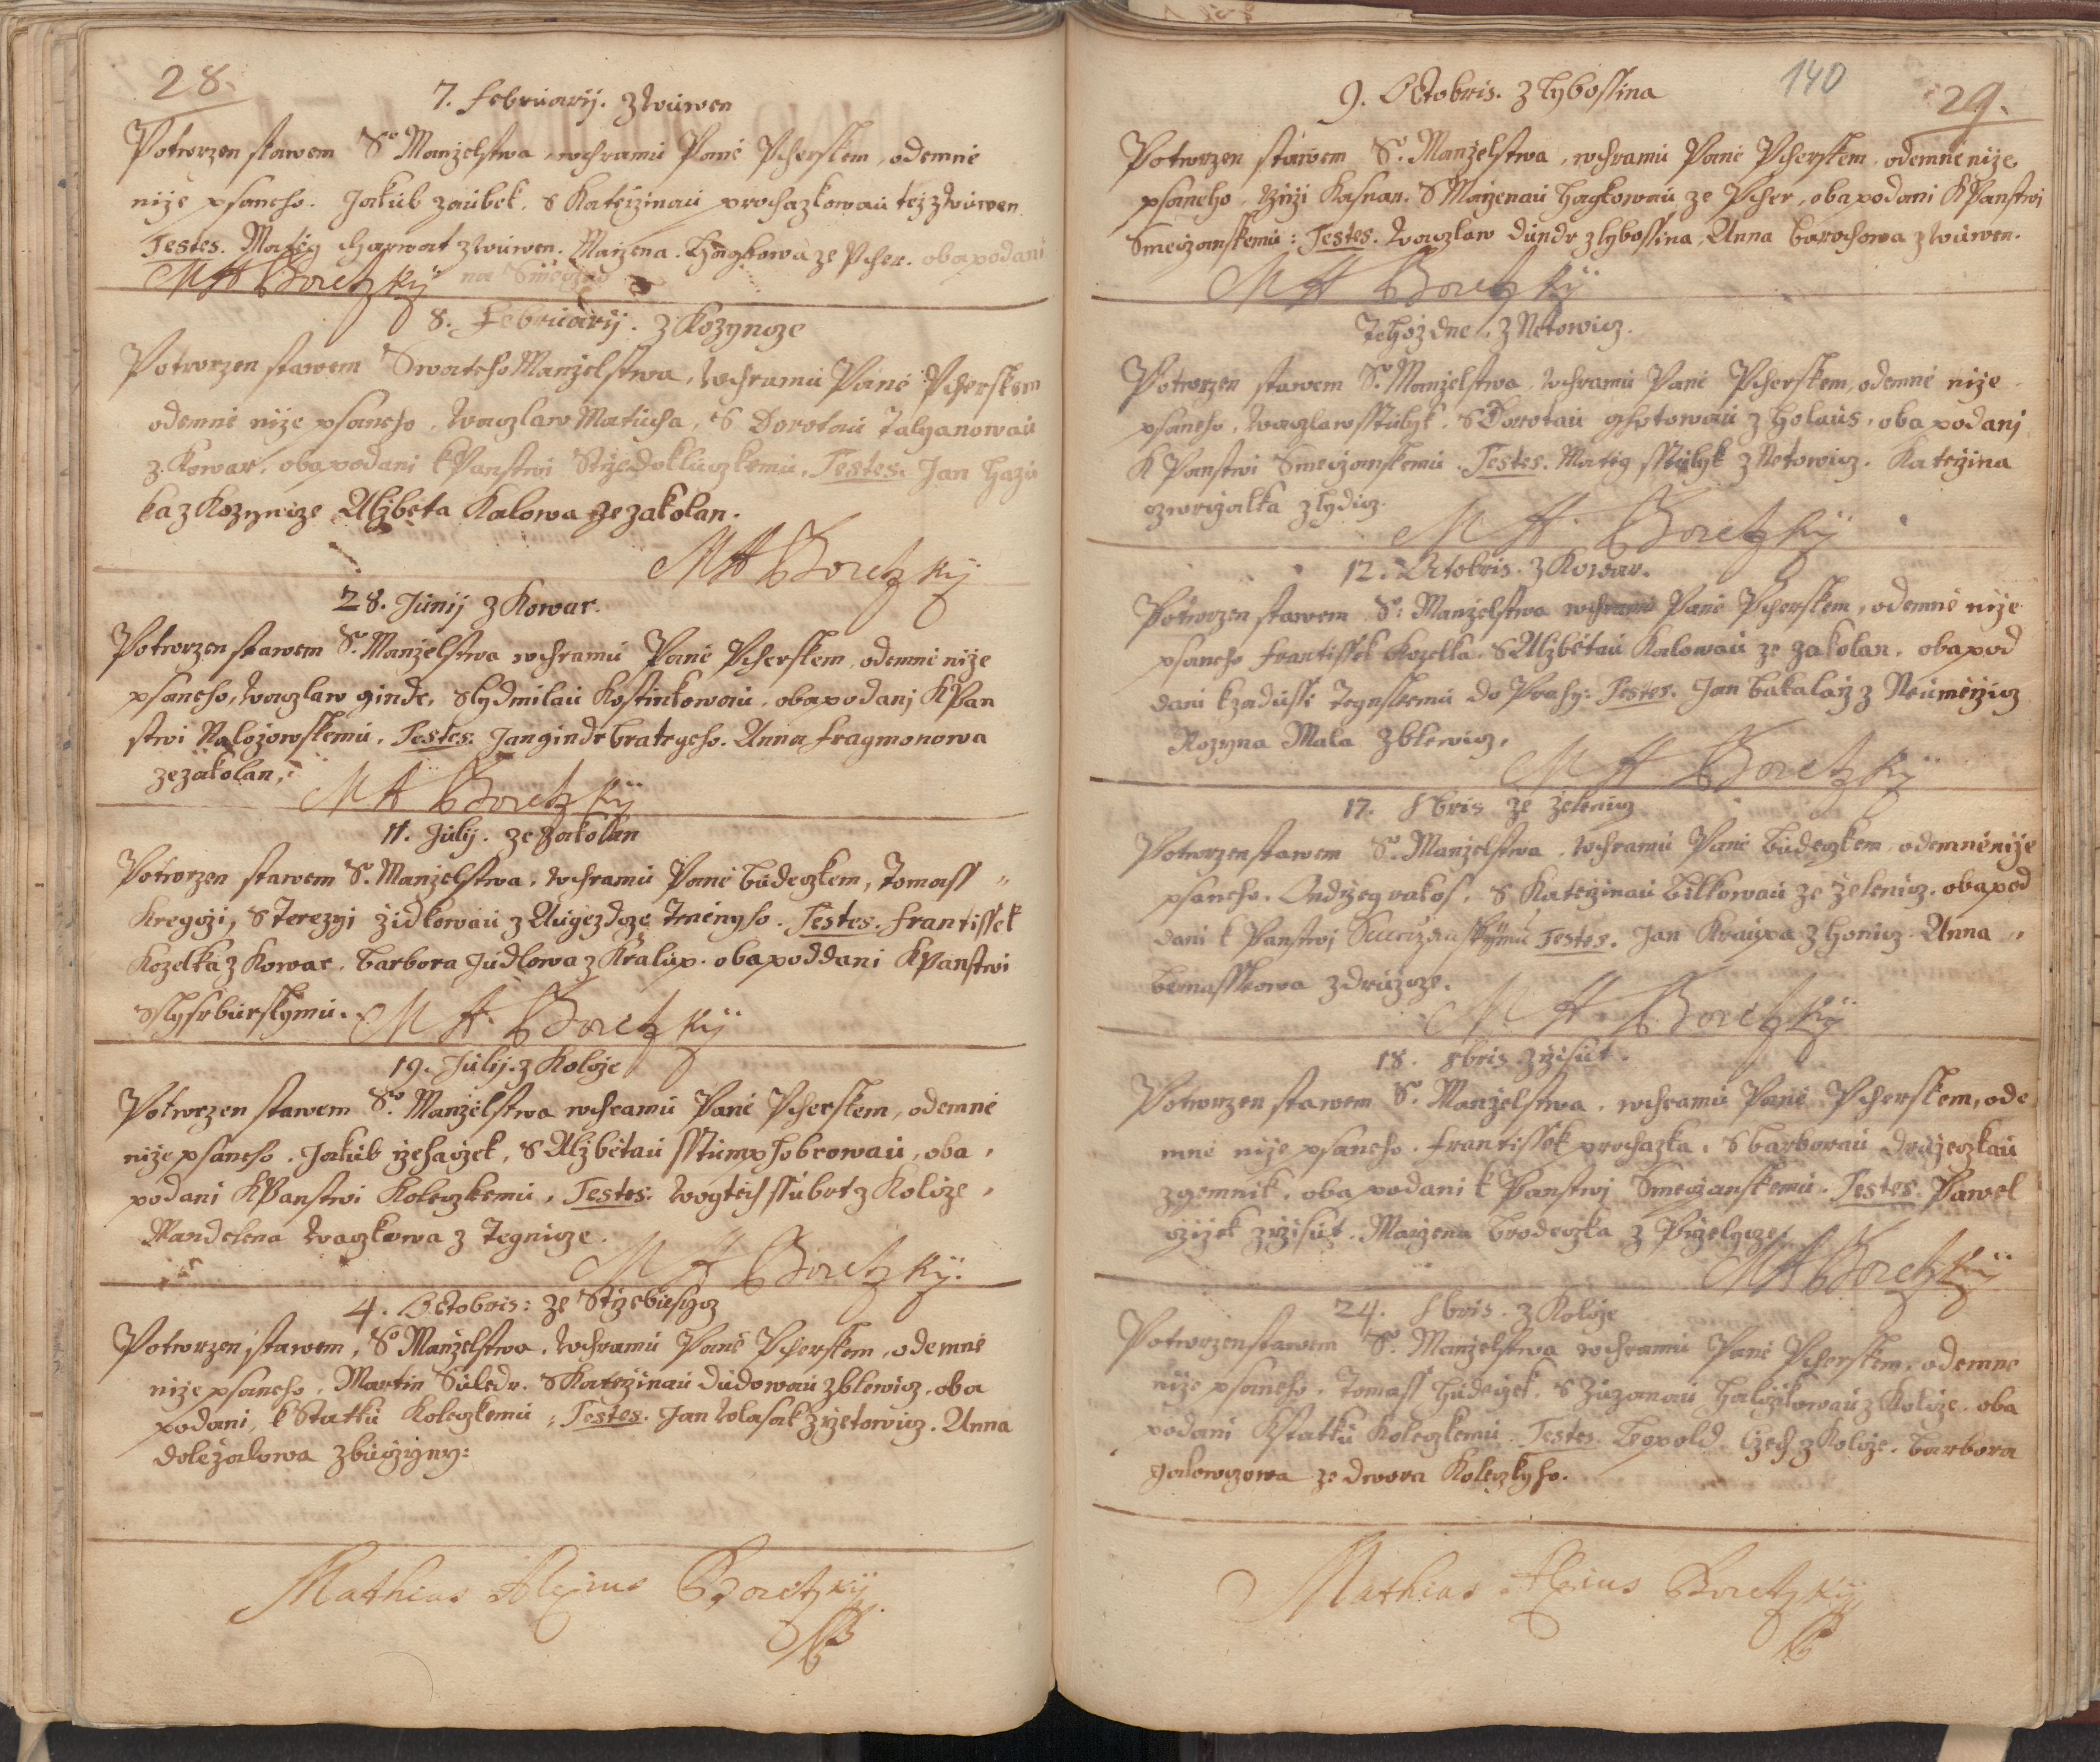 28.
7. Februarij. z Wuwen
Potwrzen stawem S° Manželstwa, w chramu Páně Pcherskem, odemně
niže psaneho. Jakub zaubek. s Kateržinau prochazkowau též z Wuwen
Testes. Matěg Charwat z Wuwen. Maržena. Hagkowa ze Pcher. oba podani
MA Boretzky na Smeczno
8. Februarij. z Kozyncze
Potwrzen stawem Swateho Manželstwa, w chramu Páně Pcherskem
odemně niže psaneho, Waczlaw Matucha, S Dorotau Talyanowau
z Kowar, oba podani k Panstwi Stržedokluczkemu, Testes. Jan Hazu
ka z Kozyncze Alžběta Kalowa ze zakolan.
MA Boretzky
28. Junij z Kowar.
Potwrzen stawem S° Manželstwa w chramu Páně Pcherskem, odemně niže
psaneho, Waczlaw gindr, s lydmilau Kostinkowau, oba podanj k Pan
stwi Naložowskemu, Testes. Jan gindr bratrgeho. Anna fragmonowa
ze zakolan,
MA Boretzky
11. Julij. ze zakolan
Potwrzen stawem S° Manželstwa, w chramu Páně budeczkem, Tomass
Kregczi, s Terezyi židkowau z Augezdcze Tměnyho. Testes. frantissek
Kozelka z Kowar. barbora Judlowa z Kralup. oba poddani k Panstwi
MA Boretzky
19. Julij. z Kolcže
Potwrzen stawem S° Manželstwa w chramu Páně Pcherskem, odemně
niže psaneho, Jakub ržehaczek, s Alžbětau sstumphobrowau, oba
podani k Panstwi Koleczkemu, Testes. Wogtěch ssubrt z Kolcze,
Mandelena Waczkowa z Tegnicze.
MA Boretzky.
4. Octobris: ze Stržebusycz
Potwrzen stawem, S° Manželstwa, w chramu Páně Pcherskem, odemně
niže psaneho, Martin Suledr. s Kateržinau dudowau z blewicz, oba
podani, k Statku Koleczkemu, Testes. Jan Wlasak z žetowicz. Anna
doležalowa z bucziny:
Mathias Alexius Boretzky
140
29.
9. Octobris. z lybossina
Potwrzen stawem S° Manželstwa, w chramu Páně Pcherskem, odemně niže
psaneho, Giržj Kasnar. S Marženau Hagkowau ze Pcher, oba podani k Panstwi
Smeczanskemu: Testes. Waczlaw dundr z lybossina, Anna barochowa z Wuwen.
MA Boretzky
Tehož dne. z Netowicz.
Potwrzen stawem S° Manželstwa, w chramu Páně Pcherskem, odemně niže
psaneho, Waczlaw sstulyk. s Dorotau ghotowau z Holaus, oba podanj
k Panstwi Smeczanskemu. Testes. Matěg sstulyk z Netowicz. Kateržina
zwržalka z lydicz.
MA Boretzky
12. Octobris. z Kowar.
Potwrzen stawem S° Manželstwa w chramu Páně Pcherskem, odemně niže
psaneho frantissek Kozelka. s Alžbětau Kalowau ze zakolan. oba pod
dani k zadussi Tegnskemu do Prahy: Testes. Jan bakalarž z Neuměržicz
Rozyna Mala z blewicz,
MA Boretzky
17. 8bris ze želenicz
Potwrzen stawem S° Manželstwa, w chramu Páně budeczkem odemně niže
psaneho. Ondržeg rakos, s Kateržinau bilkowau ze želenicz. oba pod
dani k Panstwj Smeczanskymu Testes. Jan Kraupa z Honicz. Anna
benasskowa z družcze.
MA Boretzky
18. 8bris z ržisut.
Potwrzen stawem S° Manželstwa, w chramu Páně Pcherskem, ode
mně niže psaneho. frantissek prochazka, s barborau družeczkau
z gemnik, oba podani k Panstwj Smeczanskemu. Testes. Pawel
czižek z ržisut. Maržena brodeczka z Prželycze.
MA Boretzky
24. 8bris. z Kolcže
Potwrzen stawem S° Manželstwa w chramu Páně Pcherskem, odemně
niže psaneho, Tomass Hudeczek, s Zuzanau Haližkowau z Kolcze. oba
podani k statku Koleczkemu. Testes. Leopold Czech z Kolcze. barbora
galowczowa ze dwora Koleczkyho.
Mathias Alexius Boretzky